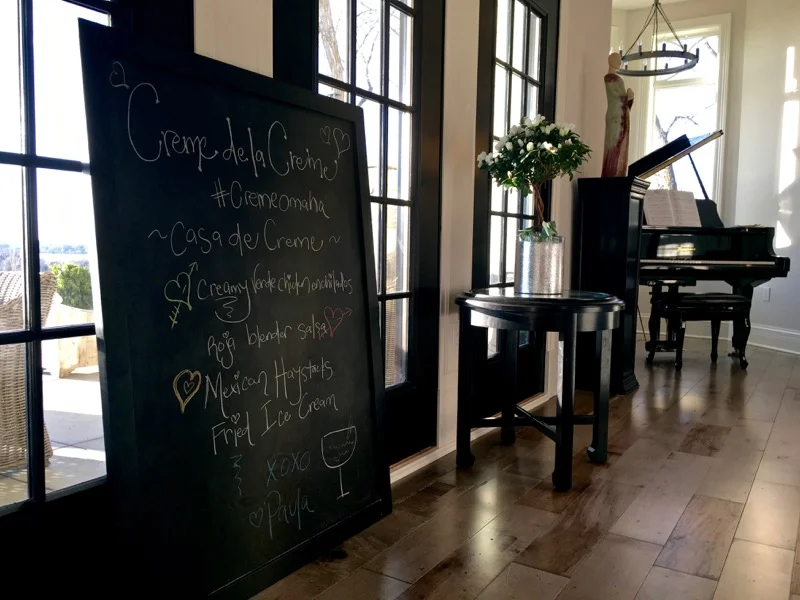 Creme de la Creme
#Cremeomaha
~Casa de Creme~
Creamy Verde chicken enchiladas
Roja blender salsa
Mexican Haystacks
Fried Ice Cream
XOXO
Payla